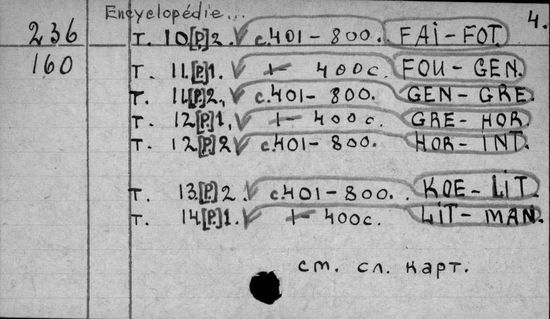 Encyclopédie... 4.
236 Т. 10[P]2. с.401-800. FAI-FOT.
160 Т. 11.[P]1. 1-400с. FOU-GEN.
Т. 11.[P]2. с.401-800. GEN-GRE.
Т. 12[P]1. 1-400с. GRE-HOR
Т. 12[P]2 с.401-800. HOR-INT.
Т. 13.[P]2. с.401-800. KOE-LIT.
Т. 14.[P]1. 1-400с. LIT-MAN.
см. сл. карт.